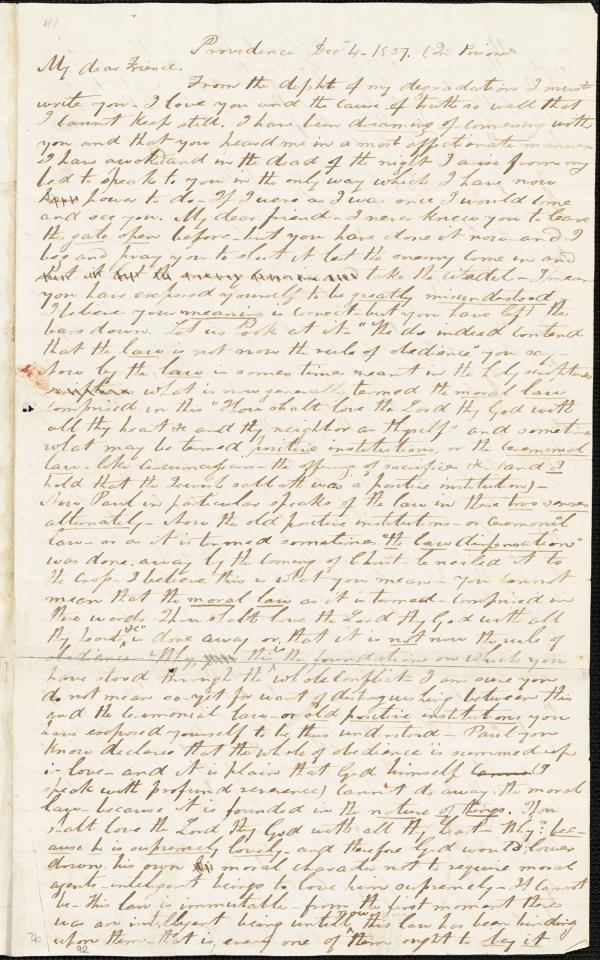 Providence Dec 4 - 1837. (In Prison
My dear Friend.
From the depht of my degradation I must
write you - I love you and the cause of truth so well that
I cannot keep still. I have been dreaming of conversing with
you and that you heard me in a most affectionate manner
I have awoke and in the dead of the night I arise from my
bed to speak to you in the only way which I have now
power to do - If I were as I was once I would come
and see you. My dear friend - I never knew you to leave
the gate open before - but you have done it now - and I
beg and pray you to shut it lest the enemy come in and
take the citadel - I mean
you have exposed yourself to be greatly misunderstood
I believe your meaning is correct - but you have left the
bars down. Let us look at it - "We do indeed contend
that the law is not now the rule of obedience" you say -
Now by the law is some times meant in the holy scriptures
what is now generally termed the moral law
comprised in this "Thou shalt love the Lord thy God with
all thy heart &c and thy neighbor as thyself" and sometimes
what may be termed positive institutions, or the ceremonial
law - like circumcision - the offering of sacrifice &c (and I
hold that the Jewish sabbath was a positive institution) -
Now Paul in particular speaks of the law in these two senses
alternately - Now the old positive institutions - or ceremonial
law - or as it is termed sometimes "the law dispensation"
was done away by the coming of Christ - he nailed it to
the cross - I believe this is what you mean - You cannot
mean that the moral law as it is termed - comprised in
these words Thou shalt love the Lord thy God with all
thy heart &c" is done away or, that it is not now the rule of
obedience - Why, this is the foundation on which you
have stood through the whole conflict - I am sure you
do not mean so - yet for want of distinguishing between this
and the ceremonial law - or old positive institutions you
have exposed yourself to be thus understood - Paul you
know declares that the whole of obedience is summed up
in love - and it is plain that God himself (I
speak with profound reverence) cannot do away the moral
law - because it is founded in the nature of things. Thou
shalt love the Lord thy God with all thy heart - Why? bec-
ause he is supremely lovely - and therefore God would lower
down his own moral character not to require moral
agents - intelligent beings to love him supremely - It cannot
be - this law is immutable - from the first moment there
was an intelligent being untill now this law has been binding
upon them - that is, every one of them ought to obey it
92